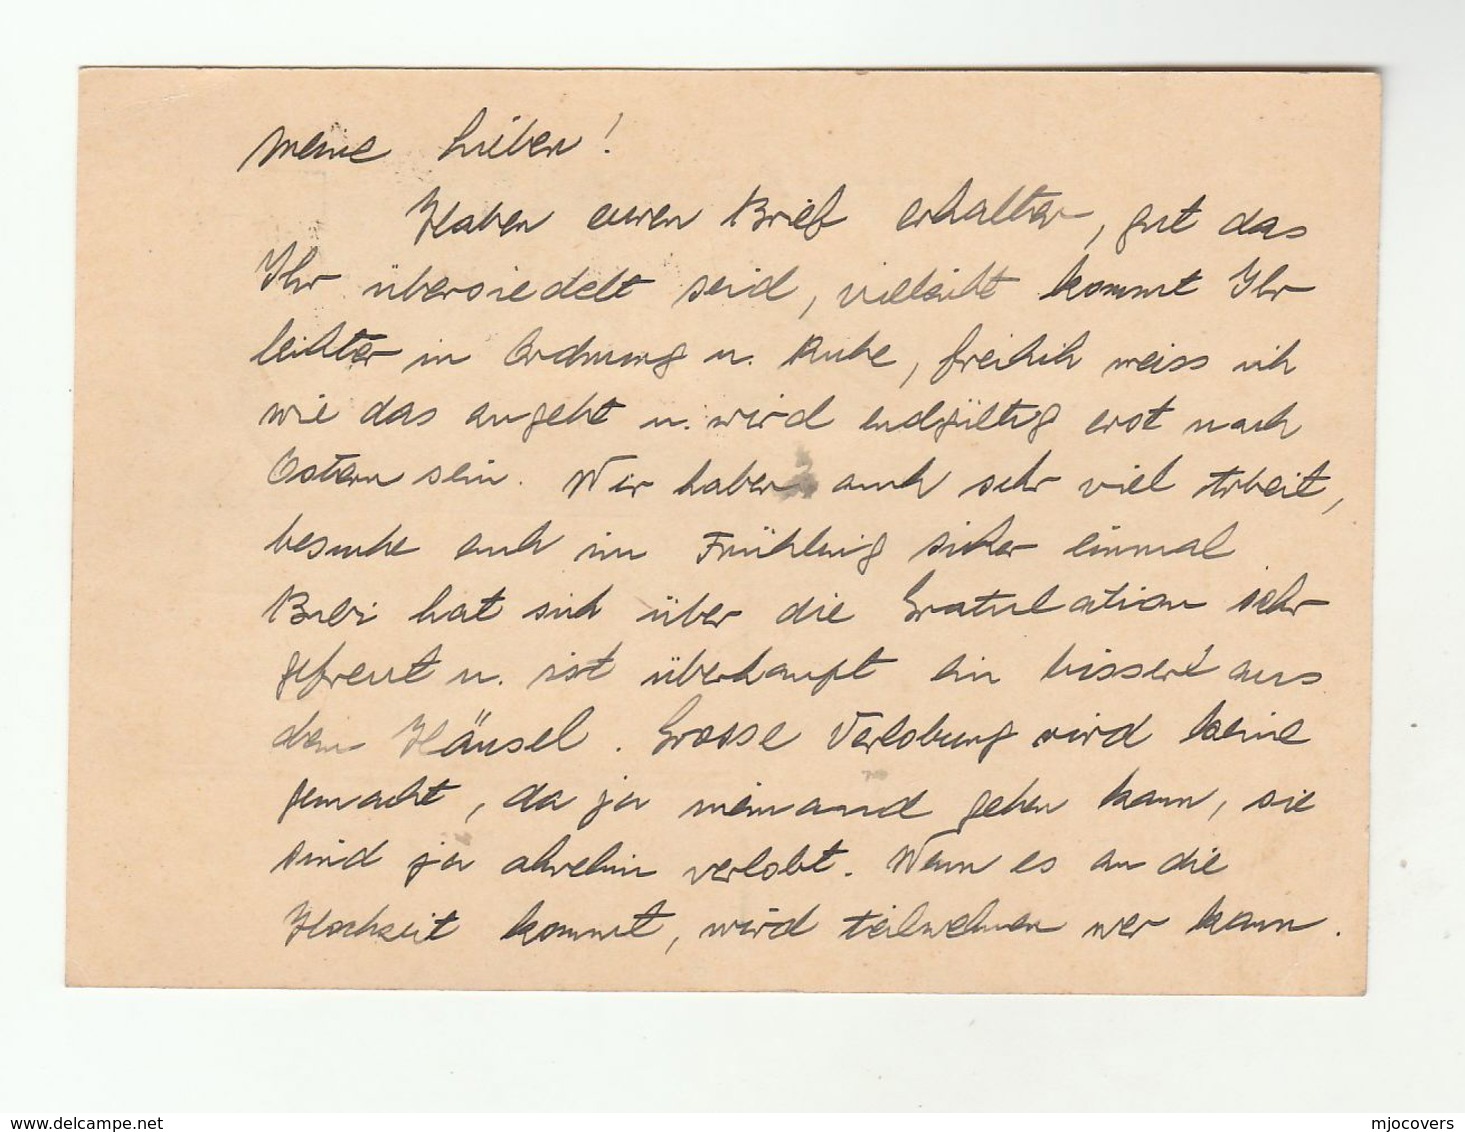 Meine Lieben!
Haben euren Brief erhalten, gut das
Ihr übersiedelt seid, vielleicht kommt Ihr
leichter in Ordnung u. Ruhe, freilich weiss ich
wie das angeht u. wird endgültig erst nach
Ostern sein. Wir haben auch sehr viel Arbeit,
besuche euch im Frühling sicher einmal
Bubi hat sich über die Gratulation sehr
gefreut u. ist überhaupt ein bisserl aus
dem Häusel. Grosse Verlobung wird keine
gemacht, da ja niemand gehen kann, sie
sind ja ohnehin verlobt. Wenn es an die
Hochzeit kommt, wird teilnehmen wer kann.
www.delcampe.net
mjocovers